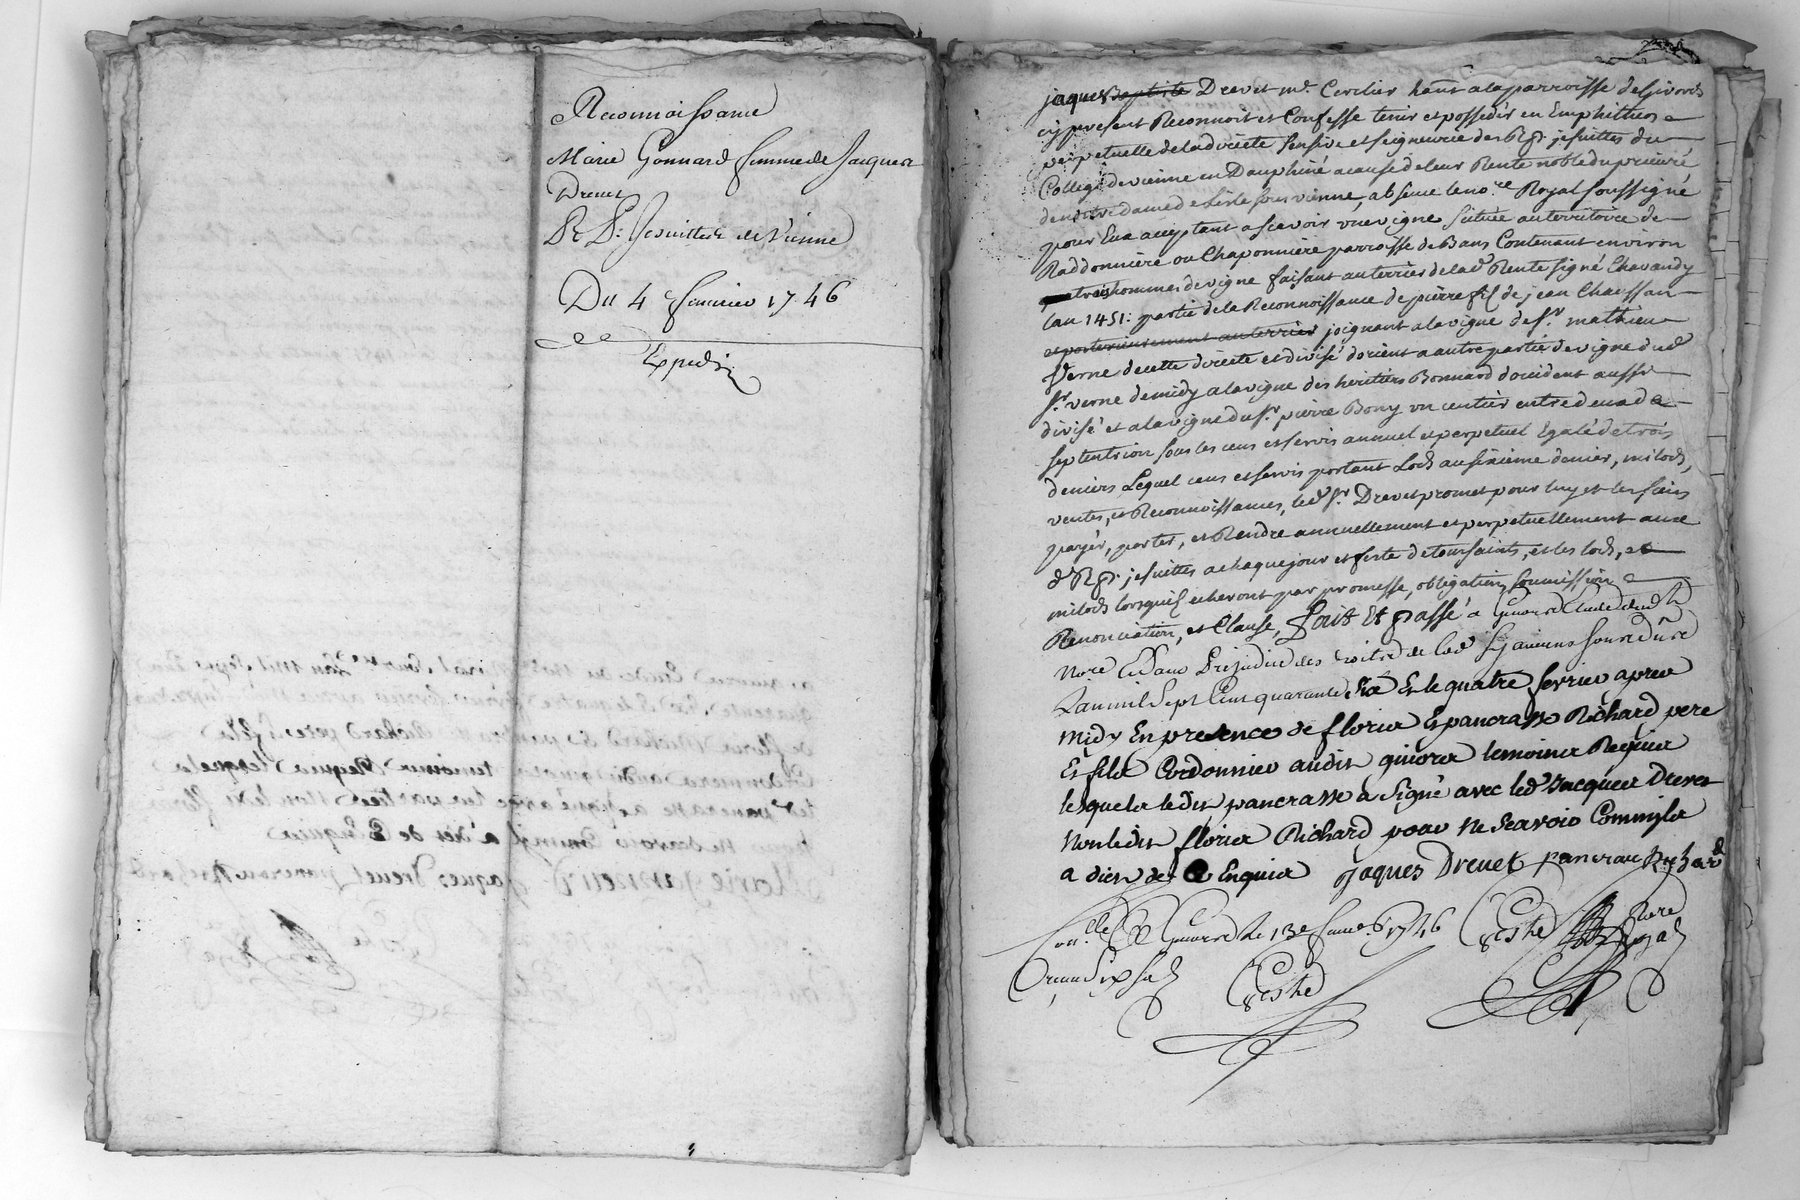 Reconnoissance
Marie Gonnard femme de Jacques
Drevet
R. P. Jesuittes de Vienne
Du 4 fevrier 1746
Expedié
jaques Baptiste Drevet md. Cerclier hãnt a la parroisse de Givords
cy present Reconnoit et Confesse tenir et posséder en Emphitheose
perpetuelle de la directe Censive et seigneurie des R. P. jesuittes du
College de vienne en Dauphiné a cause de leur Rente noble du prieuré
de nostre dame de Lisle sous vienne, absents le no.re Royal soussigné
pour Eux acceptant ascavoir vne vigne Scituée au territoire de
Raddonnière ou Chaponnière parroisse de Bans Contenant environ
trois hommes de vigne faisant au terrier de lad. Rente signé Chavandy
lan 1451: partie de la Reconnoissance de pierre fils de jean Chaussan
et posterieurement au terrier joignant a la vigne de Sr. mathieu
Verne de cette directe et divisé dorient a autre partie de vigne dud
Sr. verne de midy a la vigne des heritiers Bonnard doccident aussi
divisé et a la vigne du Sr. pierre Bony vn sentier entre deux de
septentrion sous les cens et servis annuel et perpetuel Egalé de trois
deniers Lequel cens et servis portant Lods au sixieme denier, milods,
ventes, et Reconnoissances, led. Sr. Drevet promet pour luy et les siens
payer, porter, et Rendre annuellement et perpetuellement aux
d. R. P. jesuittes a chaque jour et feste de toussaints, et les lods, et
milods lorsquils echeront par promesse, obligation, soumission
Renonciation, et Clause, fait Et passé a Givors Etude dud
No.re Et Sans Prejudice des droits de lad
Lan mil Sept Cent quarante Six Et le quatre fevrier apres
midy En presence de floris Et pancrasse Richard pere
Et fils Cordonnier audit givors temoins Requis
lesquels ledit pancrasse a signé avec led Jacques Drevet
Non ledit floris Richard pour ne scavoir Comm il
a dit de Enquis jaques Drevet pancrasse Richard
Con.lle A Givors le 13e fevr. 1746
Reçu Six sols